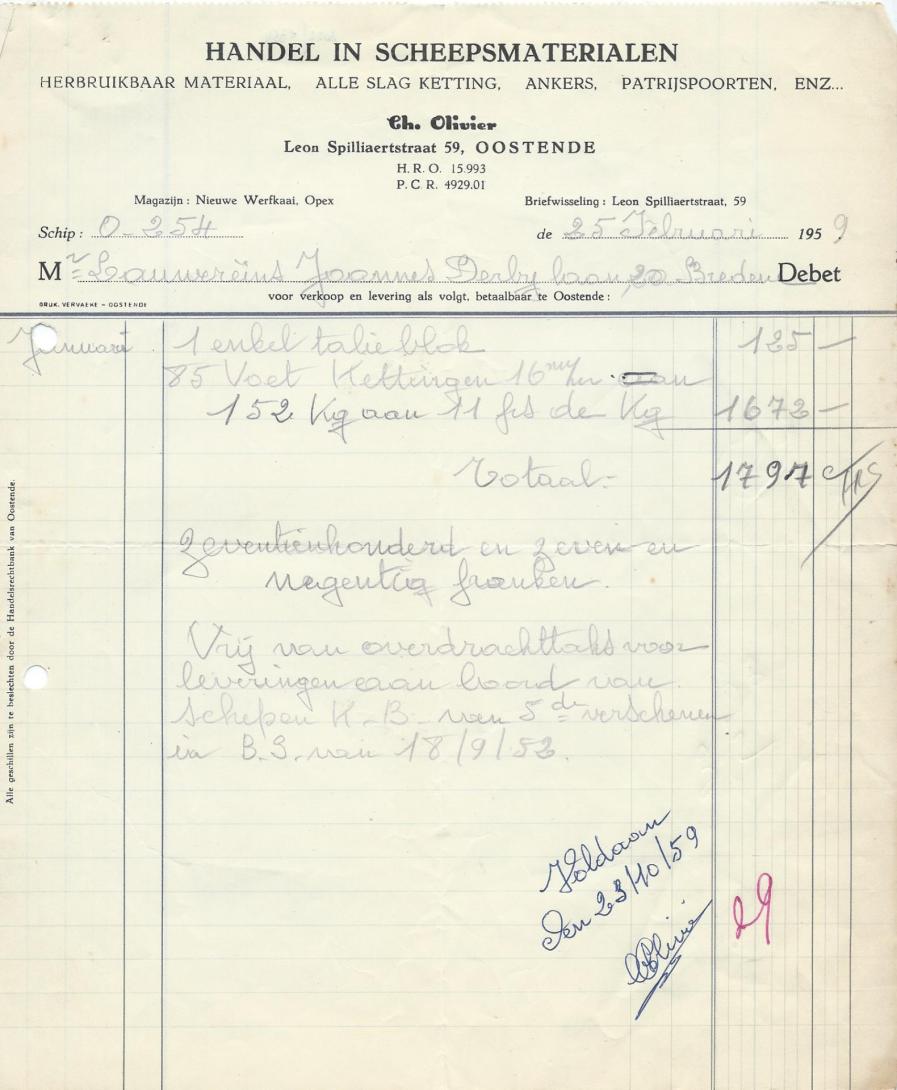 HANDEL IN SCHEEPSMATERIALEN
HERBRUIKBAAR MATERIAAL, ALLE SLAG KETTING, ANKERS, PATRIJSPOORTEN, ENZ...
Ch. Olivier
Leon Spilliaertstraat 59, OOSTENDE
H. R. O. 15.993
P. C. R. 4929.01
Magazijn : Nieuwe Werfkaai, Opex Briefwisseling : Leon Spilliaertstraat, 59
Schip : O-254 de 25 Februari 1959
Mr Lauwereins Joannes Derbylaan 20 Bredene Debet
DRUK. VERVAEKE - OOSTENDE
voor verkoop en levering als volgt, betaalbaar te Oostende :
Januari 1 enkel talie blok 125 —
85 Voet Kettingen 16 m/m aan
152 Kg aan 11 frs de Kg 1672 —
Totaal :- 1797 frs
zeventienhonderd en zeven en
negentig franken.
Vrij van overdrachttaks voor
leveringen aan boord van
schepen K.B. van 5de verschenen
in B.S. van 18/9/52.
Alle geschillen zijn te beslechten door de Handelsrechtbank van Oostende.
Voldaan
den 23/10/59
Olivier
29